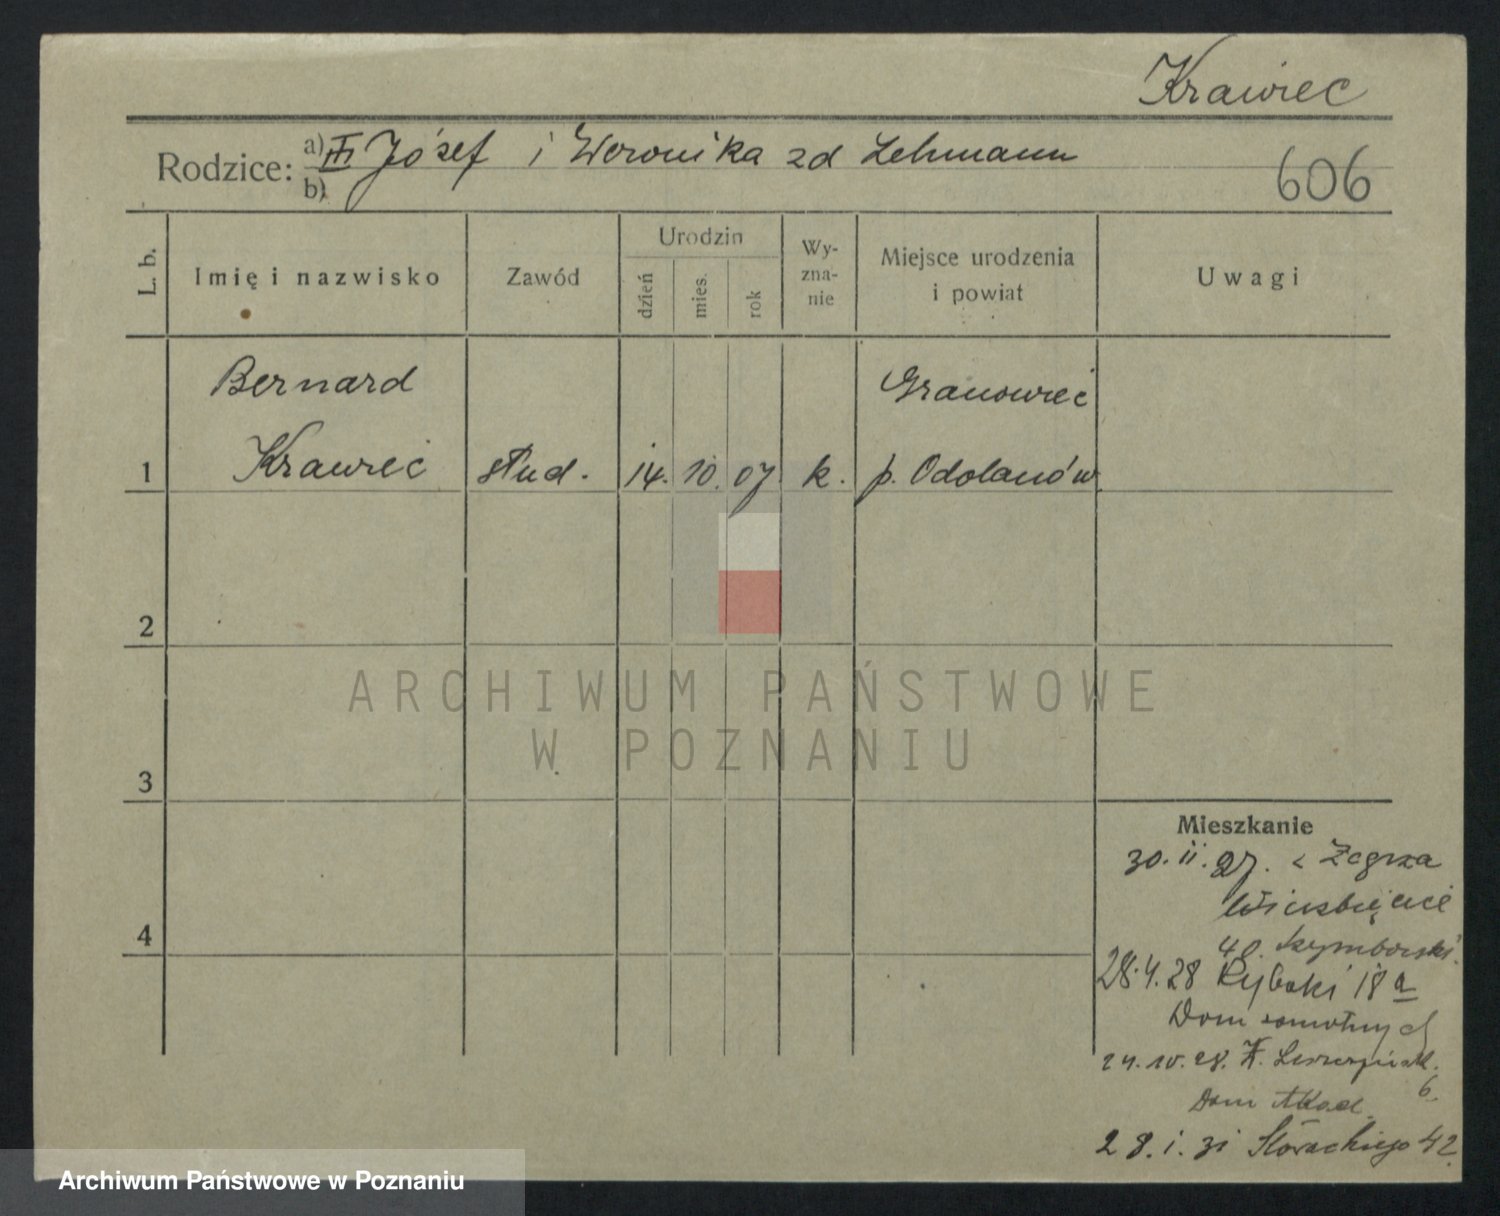 Krawiec
Rodzice: a) III Józef i Weronika zd Lehmann
b)
606
L. b.
Imię i nazwisko
Zawód
Urodzin
dzień
mies.
rok
Wy-
zna-
nie
Miejsce urodzenia
i powiat
Uwagi
Bernard
Granowiec
1 Krawiec stud. 14. 10. 07. k. p. Odolanów
2
3
4
ARCHIWUM PAŃSTWOWE
W POZNANIU
Mieszkanie
30. 11. 27. Zegrza
40.
28.4.28 Rybaki 18 a
Dom samotnych
24. 10. 28.
6.
Dom Akad.
28. 1. 31 Słowackiego 42
Archiwum Państwowe w Poznaniu